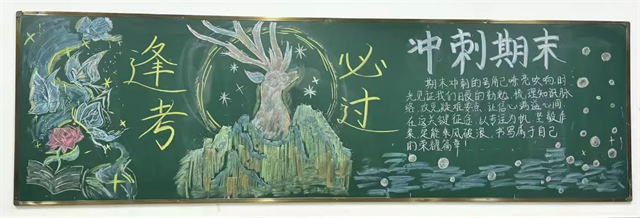 逢考
必过
冲刺期末
期末冲刺的号角已嘹亮吹响,时
光见证我们日夜的勤勉,梳理知识脉
络,攻克疑难要点,让信心满溢心间。
在这关键征途,以专注为帆,坚毅为桨
定能乘风破浪,书写属于自己
的荣耀篇章!